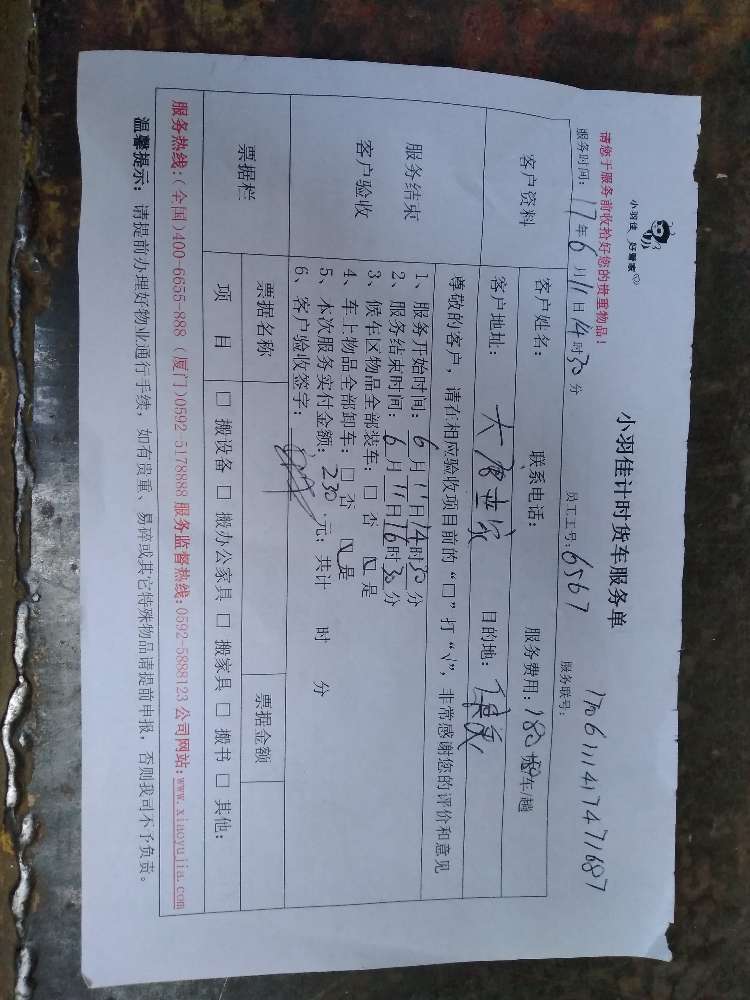 小羽佳 好管家
小羽佳计时货车服务单
请您于服务前收拾好您的贵重物品!
服务时间: 17年6月11日14时30分 员工工号: 6567 服务联号: 1706111417471687
客户资料
客户姓名: 联系电话: 服务费用: 180 车/趟
客户地址: 目的地:
服务结束
客户验收
尊敬的客户, 请在相应验收项目前的“□”打“√”, 非常感谢您的评价和意见
1、服务开始时间: 6月11日14时30分
2、服务结束时间: 6月11日16时30分
3、候车区物品全部装车: □ 否 ☑ 是
4、车上物品全部卸车: □ 否 ☑ 是
5、本次服务实付金额: 230元; 共计 时 分
6、客户验收签字:
票据栏
票据名称 票据金额
项 目 □ 搬设备 □ 搬办公家具 □ 搬家具 □ 搬书 □ 其他:
服务热线:(全国)400-6655-888 (厦门)0592 5178888 服务监督热线:0592-5888123 公司网站:www.xiaoyujia.com
温馨提示: 请提前办理好物业通行手续, 如有贵重、易碎或其它特殊物品请提前申报, 否则我司不予负责。